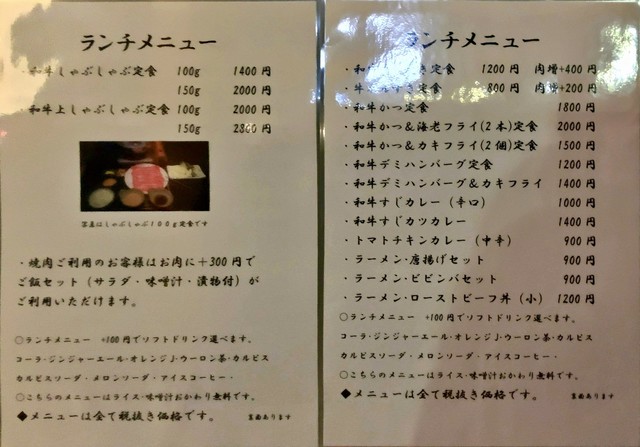 ランチメニュー
・和牛しゃぶしゃぶ定食 100g 1400円
150g 2000円
・和牛上しゃぶしゃぶ定食 100g 2000円
150g 2800円
写真はしゃぶしゃぶ100g定食です
・焼肉ご利用のお客様はお肉に+300円で
ご飯セット（サラダ・味噌汁・漬物付）が
ご利用いただけます。
○ランチメニュー +100円でソフトドリンク選べます。
コーラ・ジンジャーエール・オレンジJ・ウーロン茶・カルピス
カルピスソーダ・メロンソーダ・アイスコーヒー・
○こちらのメニューはライス・味噌汁おかわり無料です。
◆メニューは全て税抜き価格です。 裏面あります
ンチメニュー
・和 き定食 1200円 肉増+400円
・牛 すき定食 800円 肉増+200円
・和牛かつ定食 1800円
・和牛かつ&海老フライ(2本)定食 2000円
・和牛かつ&カキフライ(2個)定食 1500円
・和牛デミハンバーグ定食 1200円
・和牛デミハンバーグ&カキフライ 1400円
・和牛すじカレー（辛口） 1000円
・和牛すじカツカレー 1400円
・トマトチキンカレー（中辛） 900円
・ラーメン・唐揚げセット 900円
・ラーメン・ビビンバセット 900円
・ラーメン・ローストビーフ丼（小） 1200円
○ランチメニュー +100円でソフトドリンク選べます。
コーラ・ジンジャーエール・オレンジJ・ウーロン茶・カルピス
カルピスソーダ・メロンソーダ・アイスコーヒー・
○こちらのメニューはライス・味噌汁おかわり無料です。
◆メニューは全て税抜き価格です。 裏面あります